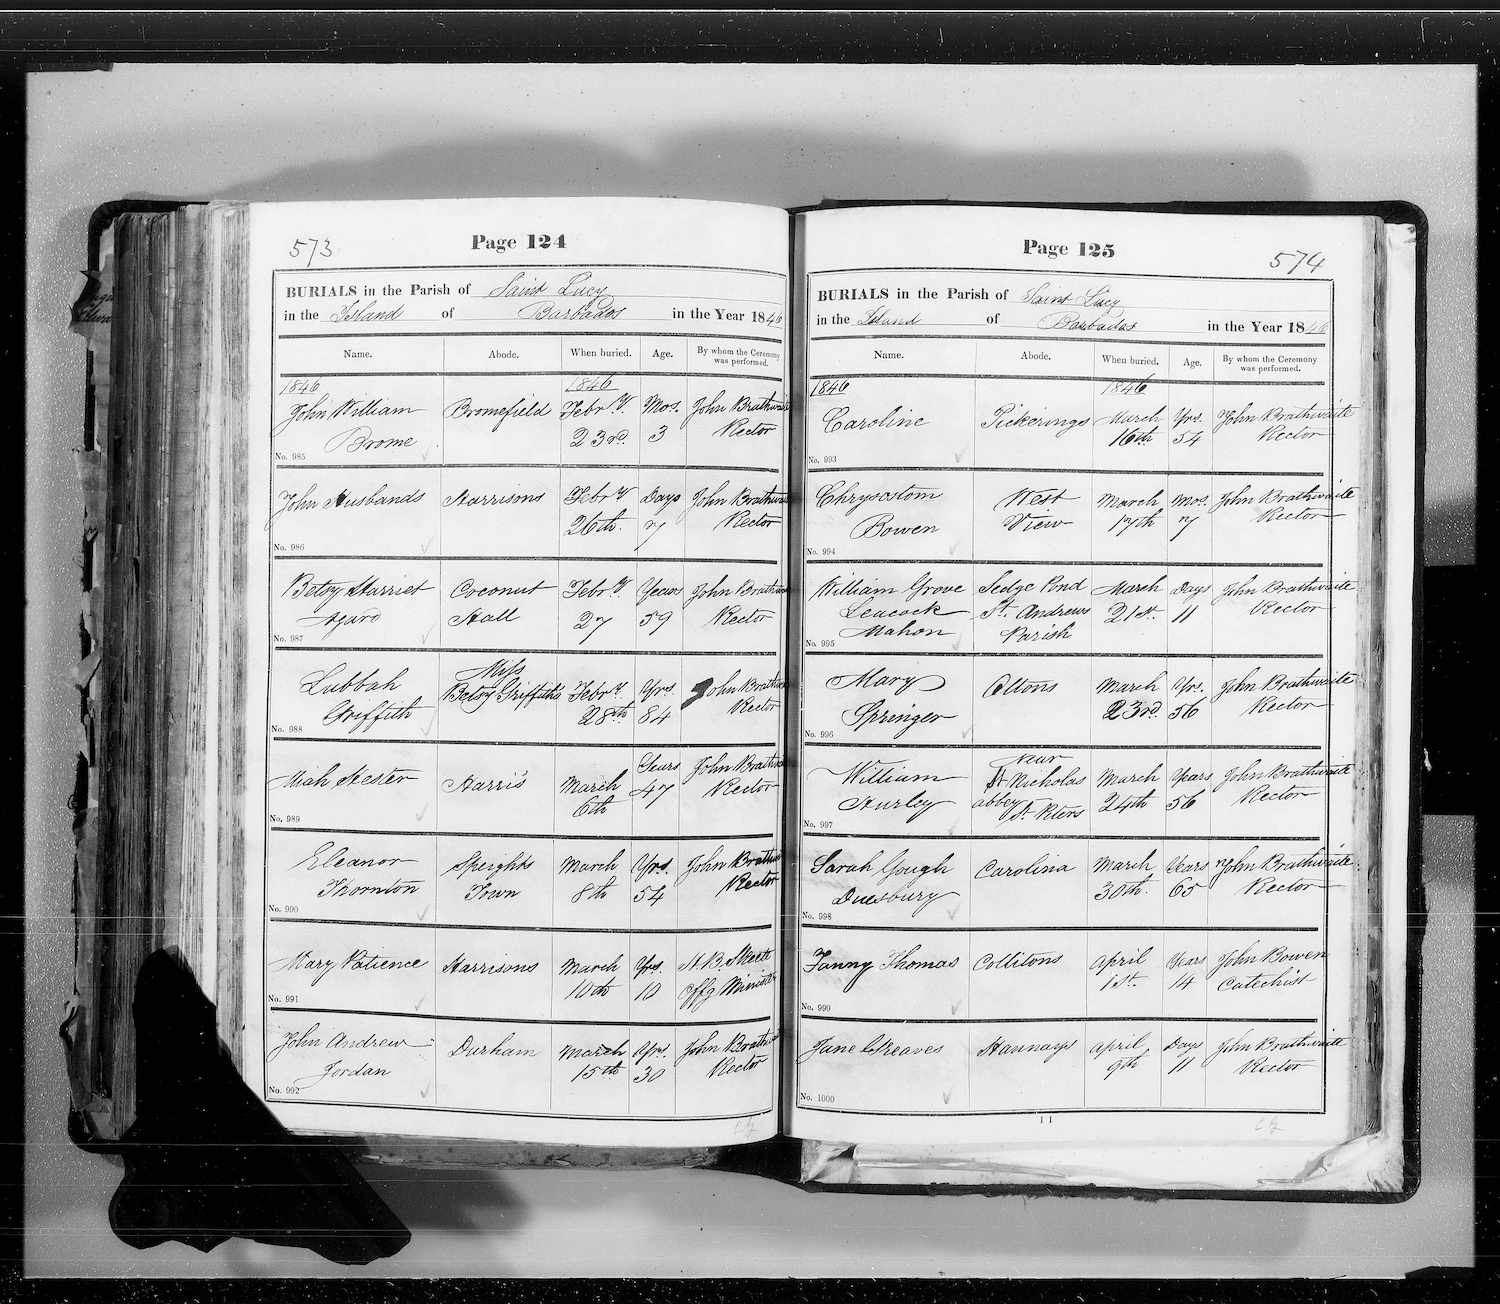 573
Page 124
BURIALS in the Parish of Saint Lucy
in the Island of Barbados in the Year 1846
Name. Abode. When buried. Age. By whom the Ceremony was performed.
1846 1846
John William Bromefield Febry. Mos. John Brathwai
Brome 23rd. 3 Rector
No. 985
John Husbands Harrisons Febry Days John Brathwai
26th. 7 Rector
No. 986
Betsy Harriet Coconut Febry. Years John Brathwai
Agard Hall 27 59 Rector
No. 987
Miss
Lubbah Betsy Griffiths Febry. Yrs. John Brathwai
Griffith 28th 84 Rector
No. 988
Miah Hester Harris March Years John Brathwai
6th 47 Rector
No. 989
Eleanor Speights March Yrs. John Brathwai
Thornton Town 8th 54 Rector
No. 990
Mary Patience Harrisons March Yrs. H. B. Skeete
10th 10 Offg Minister
No. 991
John Andrew Durham March Yrs. John Brathwai
Jordan 15th 30 Rector
No. 992
Page 125
574
BURIALS in the Parish of Saint Lucy
in the Island of Barbados in the Year 1846
Name. Abode. When buried. Age. By whom the Ceremony was performed.
1846 1846
Caroline Pickerings March Yrs. John Brathwaite
16th 54 Rector
No. 993
Chrysostom West March Mos. John Brathwaite
Bowen View 17th 7 Rector
No. 994
William Grove Sedge Pond March Days John Brathwaite
Leacock St. Andrews 21st. 11 Rector
Mahon Parish
No. 995
Mary Oltons March Yrs. John Brathwaite
Springer 23rd. 56 Rector
No. 996
near
William St Nicholas March Years John Brathwaite
Hurley abbey St. Peters 24th 56 Rector
No. 997
Sarah Gough Carolina March Years John Brathwaite
Duesbury 30th. 65 Rector
No. 998
Fanny Thomas Collitons April Years John Bowen
1st. 14 Catechist
No. 999
Jane Greaves Hannays April Days John Brathwaite
9th 11 Rector
No. 1000
11